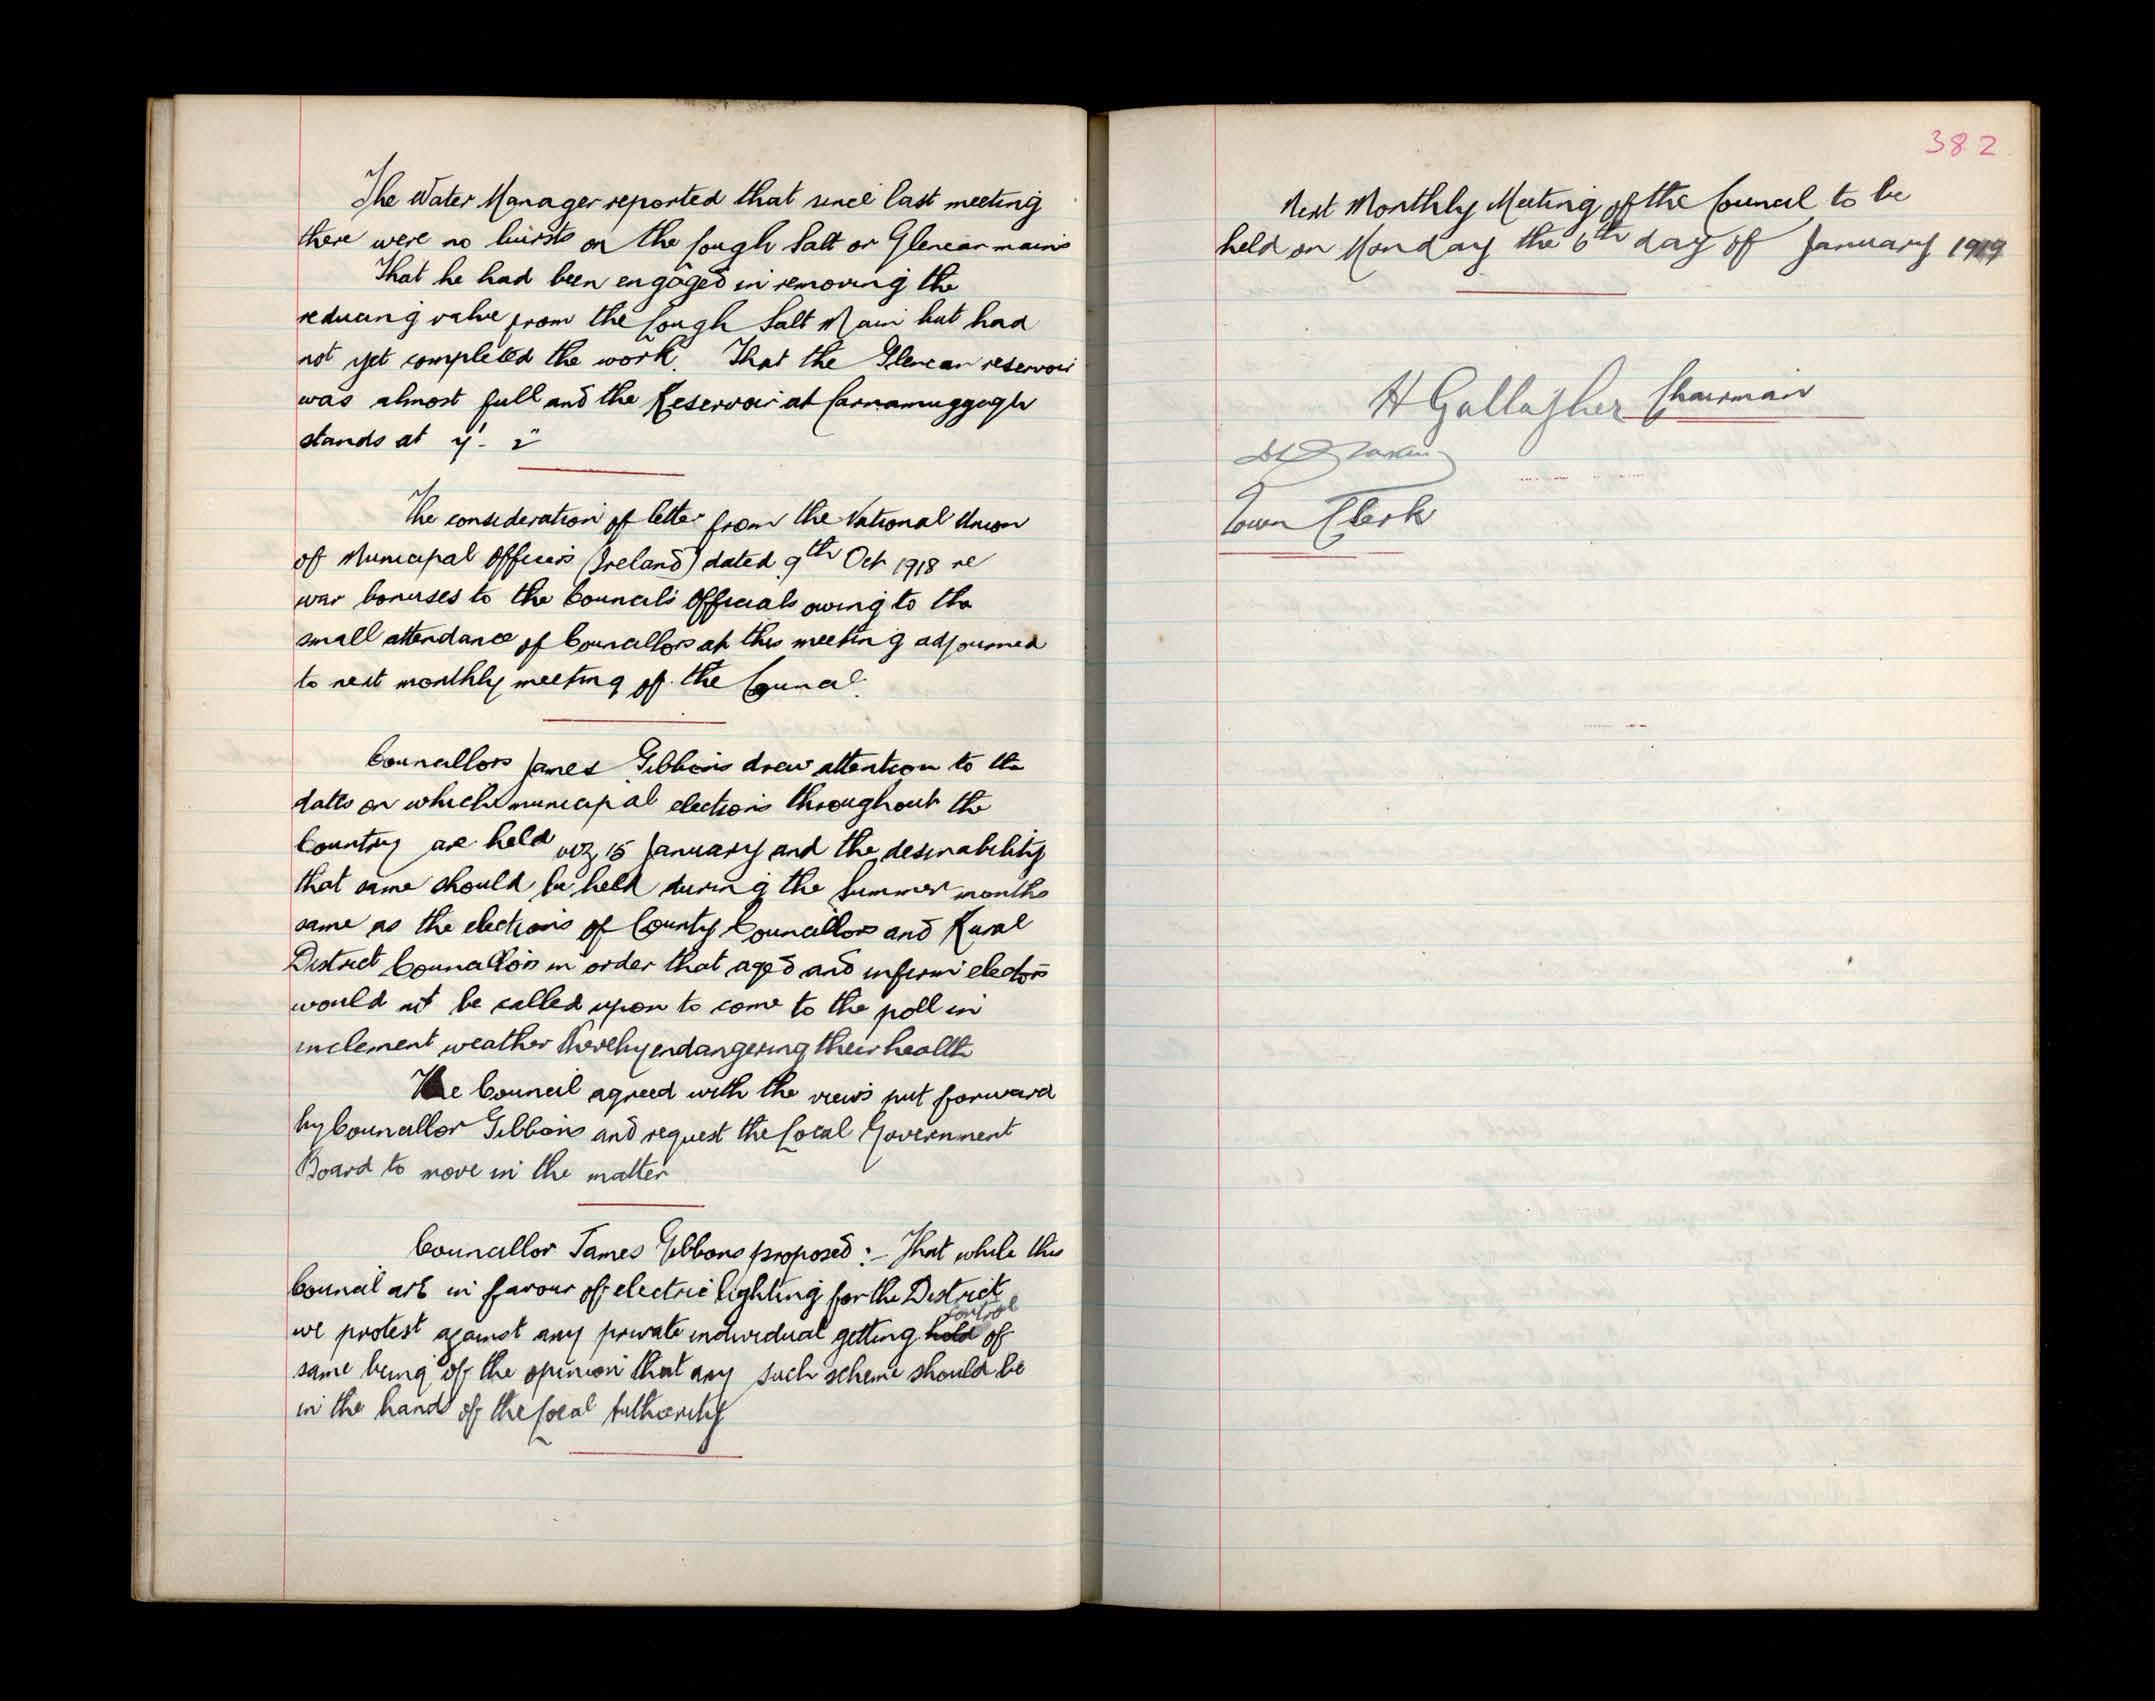 The Water Manager reported that since last meeting
there were no bursts on the Lough Salt or Glencar mains
That he had been engaged in removing the
reducing valve from the Lough Salt Main but had
not yet completed the work. That the Glencar reservoir
was almost full and the Reservoir at Carnamuggagh
stands at 4'- 2"
The consideration of letter from the National Union
of Municipal Officers (Ireland) dated 9th Oct 1918 re
war bonuses to the Councils Officials owing to the
small attendance of Councillors at this meeting adjourned
to next monthly meeting of the Council.
Councillors James Gibbons drew attention to the
dates on which municipal elections throughout the
Country are held viz 15 January and the desirability
that same should be held during the Summer months
same as the elections of County Councillors and Rural
District Councillors in order that aged and infirm electors
would not be called upon to come to the poll in
inclement weather thereby endangering their health
The Council agreed with the views put forward
by Councillor Gibbons and request the Local Government
Board to move in the matter
Councillor James Gibbons proposed :- That while this
Council are in favour of electric lighting for the District
control
we protest against any private individual getting hold of
same being of the opinion that any such scheme should be
in the hands of the Local Authority
382
Next Monthly Meeting of the Council to be
held on Monday the 6th day of January 1919
H Gallagher Chairman
Town Clerk